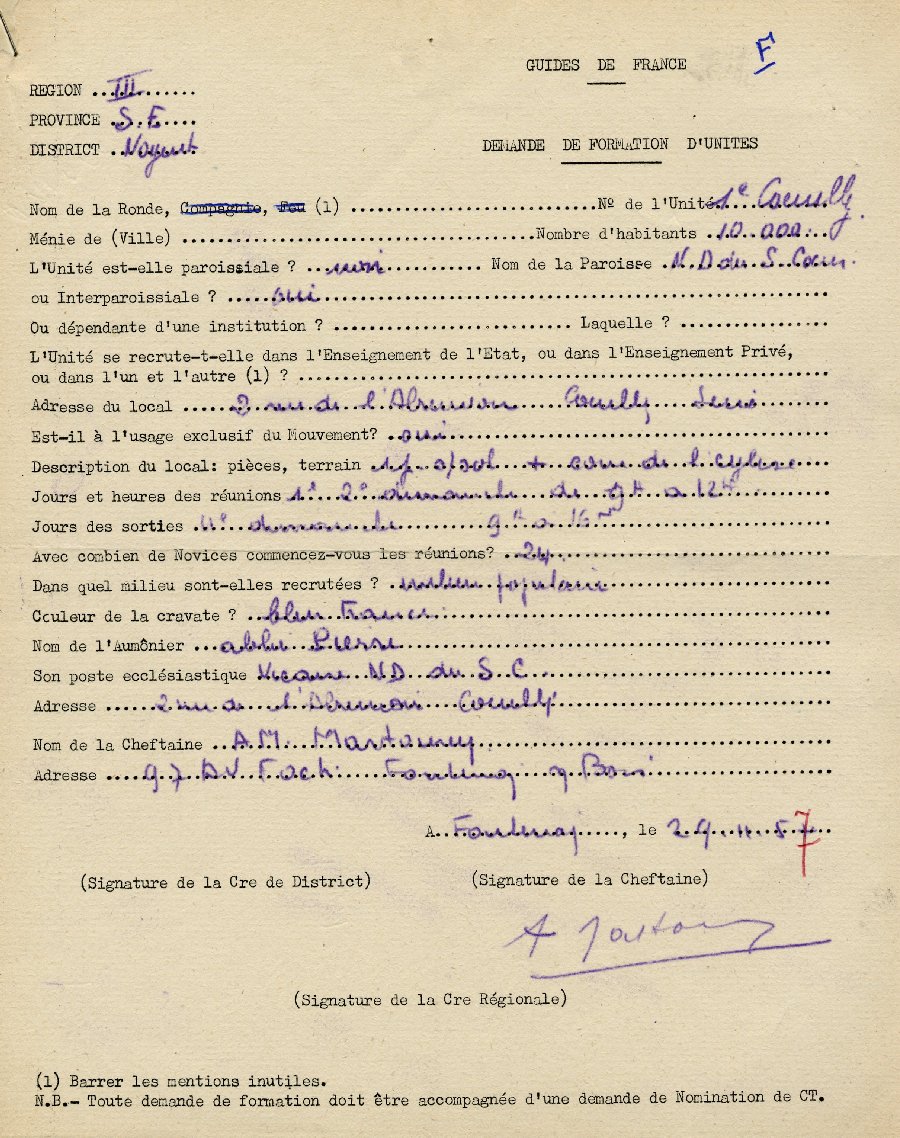 GUIDES DE FRANCE
F
REGION III
PROVINCE S.E.
DISTRICT Nogent
DEMANDE DE FORMATION D'UNITES
Nom de la Ronde, Compagnie, Feu (1) ............ Nº de l'Unité 1e Coeuilly
Ménie de (Ville) ............ Nombre d'habitants 10.000
L'Unité est-elle paroissiale ? non Nom de la Paroisse N.D du S. Coeur.
ou Interparoissiale ? oui
Ou dépendante d'une institution ? ............ Laquelle ? ............
L'Unité se recrute-t-elle dans l'Enseignement de l'Etat, ou dans l'Enseignement Privé,
ou dans l'un et l'autre (1) ? ............
Adresse du local 2 rue de l' Coeuilly
Est-il à l'usage exclusif du Mouvement? oui
Description du local: pièces, terrain + cour de l'église
Jours et heures des réunions 1e 2e dimanche de 9H a 12H
Jours des sorties 4e dimanche 9H a 16
Avec combien de Novices commencez-vous les réunions? 24.
Dans quel milieu sont-elles recrutées ? milieu populaire
Couleur de la cravate ? bleu France
Nom de l'Aumônier abbé Pierre
Son poste ecclésiastique Vicaire N.D. du S.C
Adresse 2 rue de l' Coeuilly
Nom de la Cheftaine A.M. Martourey
Adresse 97 AV. Foch Fontenay s/ Bois
A Fontenay, le 29.11.57
(Signature de la Cre de District) (Signature de la Cheftaine)
(Signature de la Cre Régionale)
(1) Barrer les mentions inutiles.
N.B.- Toute demande de formation doit être accompagnée d'une demande de Nomination de CT.